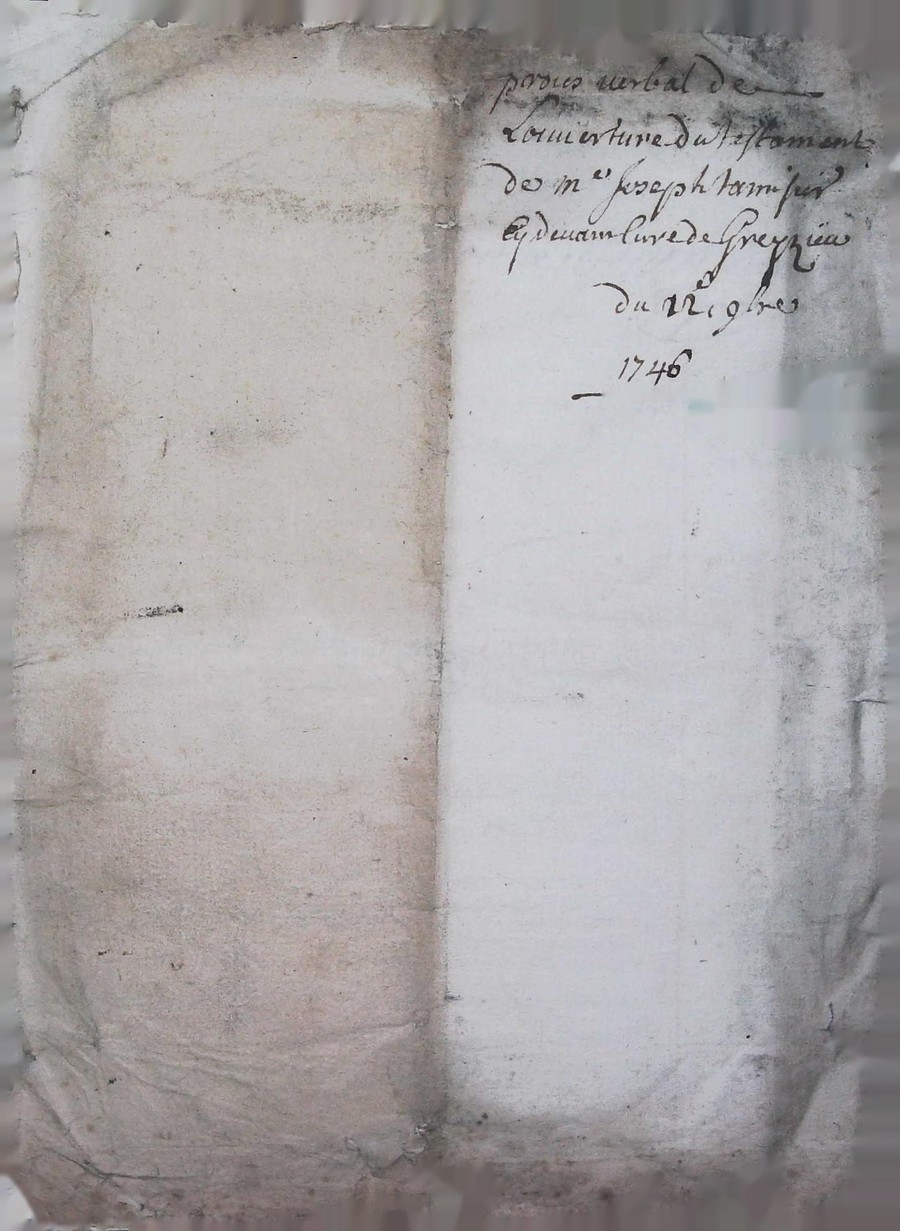 proces verbal de
Louuerture du testament
de me Joseph tamisier
Cy deuant Cure de Greyzieu
du 12e 9bre
1746